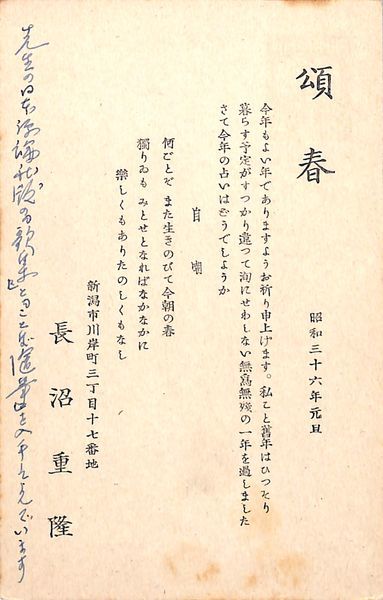 頌春
昭和三十六年元旦
今年もよい年でありますようお祈り申上げます。私こと舊年はひつそり
暮らす予定がすつかり違つて洵にせわしない無為無残の一年を過しました
さて今年の占いはどうでしようか
自嘲
何ごとぞ また生きのびて今朝の春
獨りゐも みとせとなればなかなかに
楽しくもありたのしくもなし
新潟市川岸町三丁目十七番地
長沼重隆
先生の日本 歌集と 随筆を入手して います